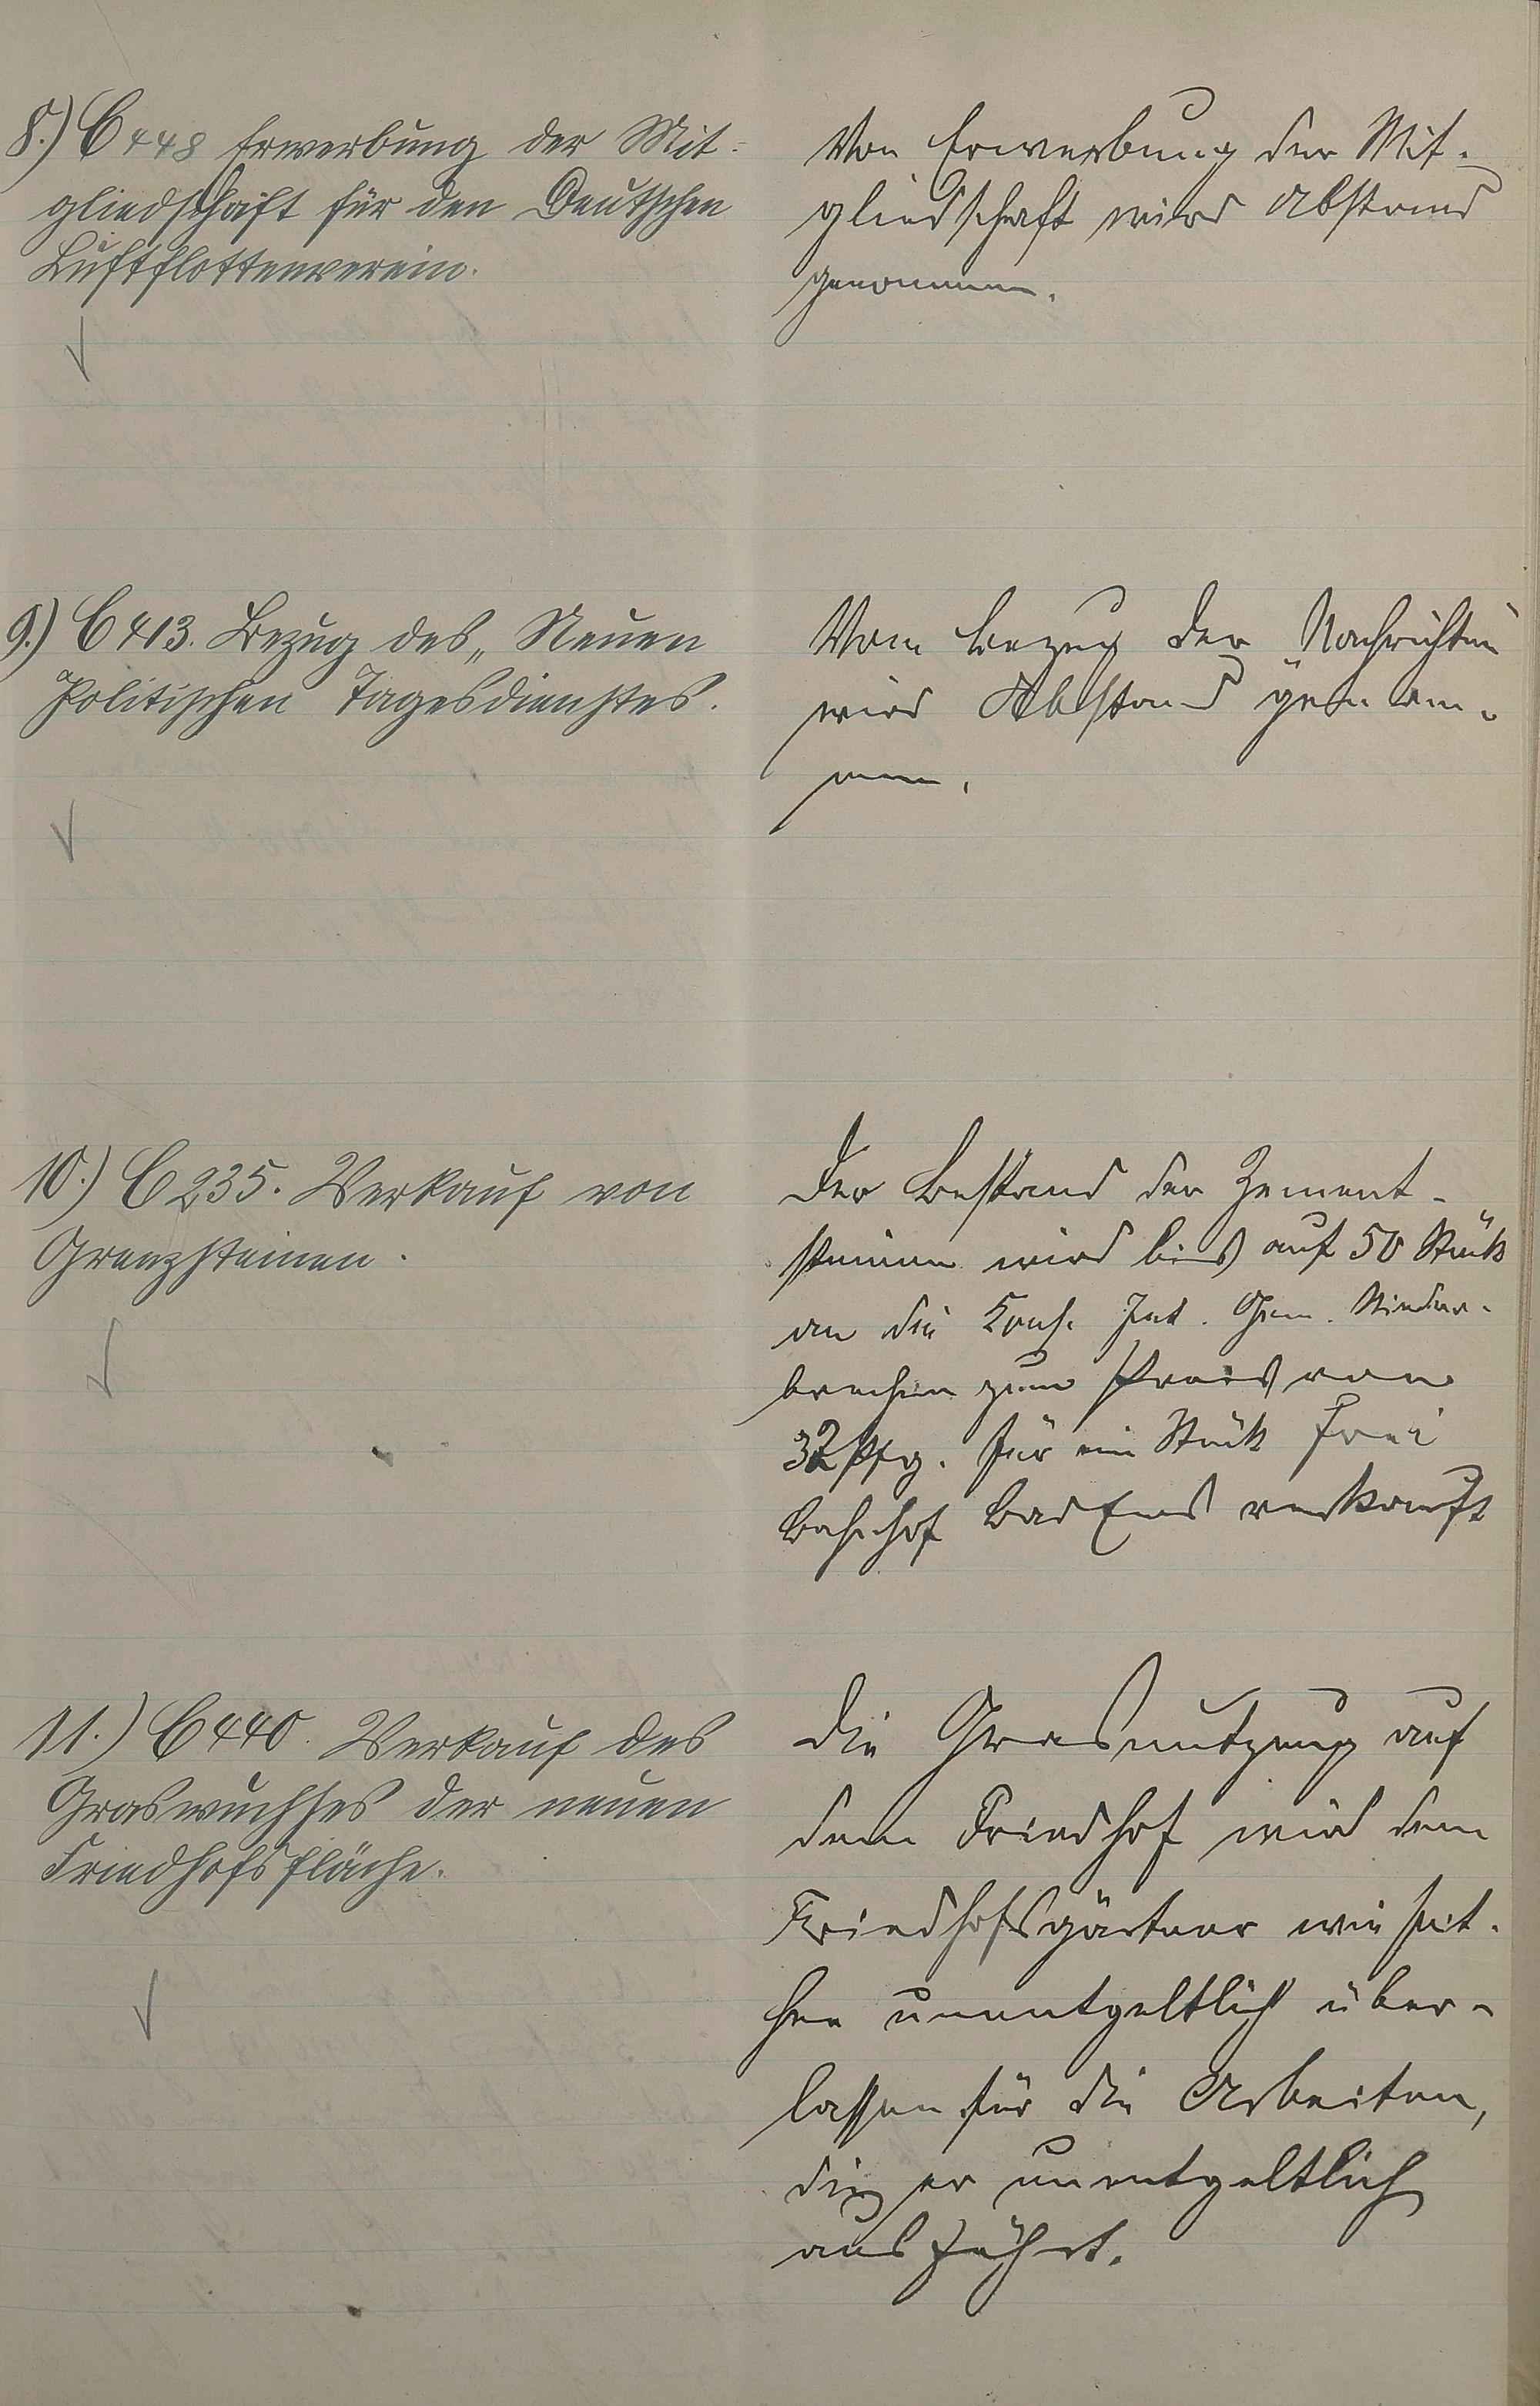 8.) C 448 Erwerbung der Mit-
gliedschaft für den Deutschen
Luftflottenverein.
Von Erwerbung der Mit-
gliedschaft wird Abstand
genommen.
9.) C 413. Bezug des „Neuen
Politischen Tagesdienstes.
Vom Bezug der Nachrichten
wird Abstand genom-
men.
10.) C 235. Verkauf von
Grenzsteinen.
Der Bestand der Zement-
steinen wird bis auf 50 Stück
an die Kons. Int. Gem. Nieder-
brechen zum Preis von
32 Pfg. für ein Stück frei
Bahnhof Bad Ems verkauft
11.) C 440. Verkauf des
Graswuchses der neuen
Friedhofsfläche.
Die Grasnutzung auf
dem Friedhof wird dem
Friedhofsgärtner wie seit-
her unentgeltlich über-
lassen für die Arbeiten,
die er unentgeltlich
ausführt.